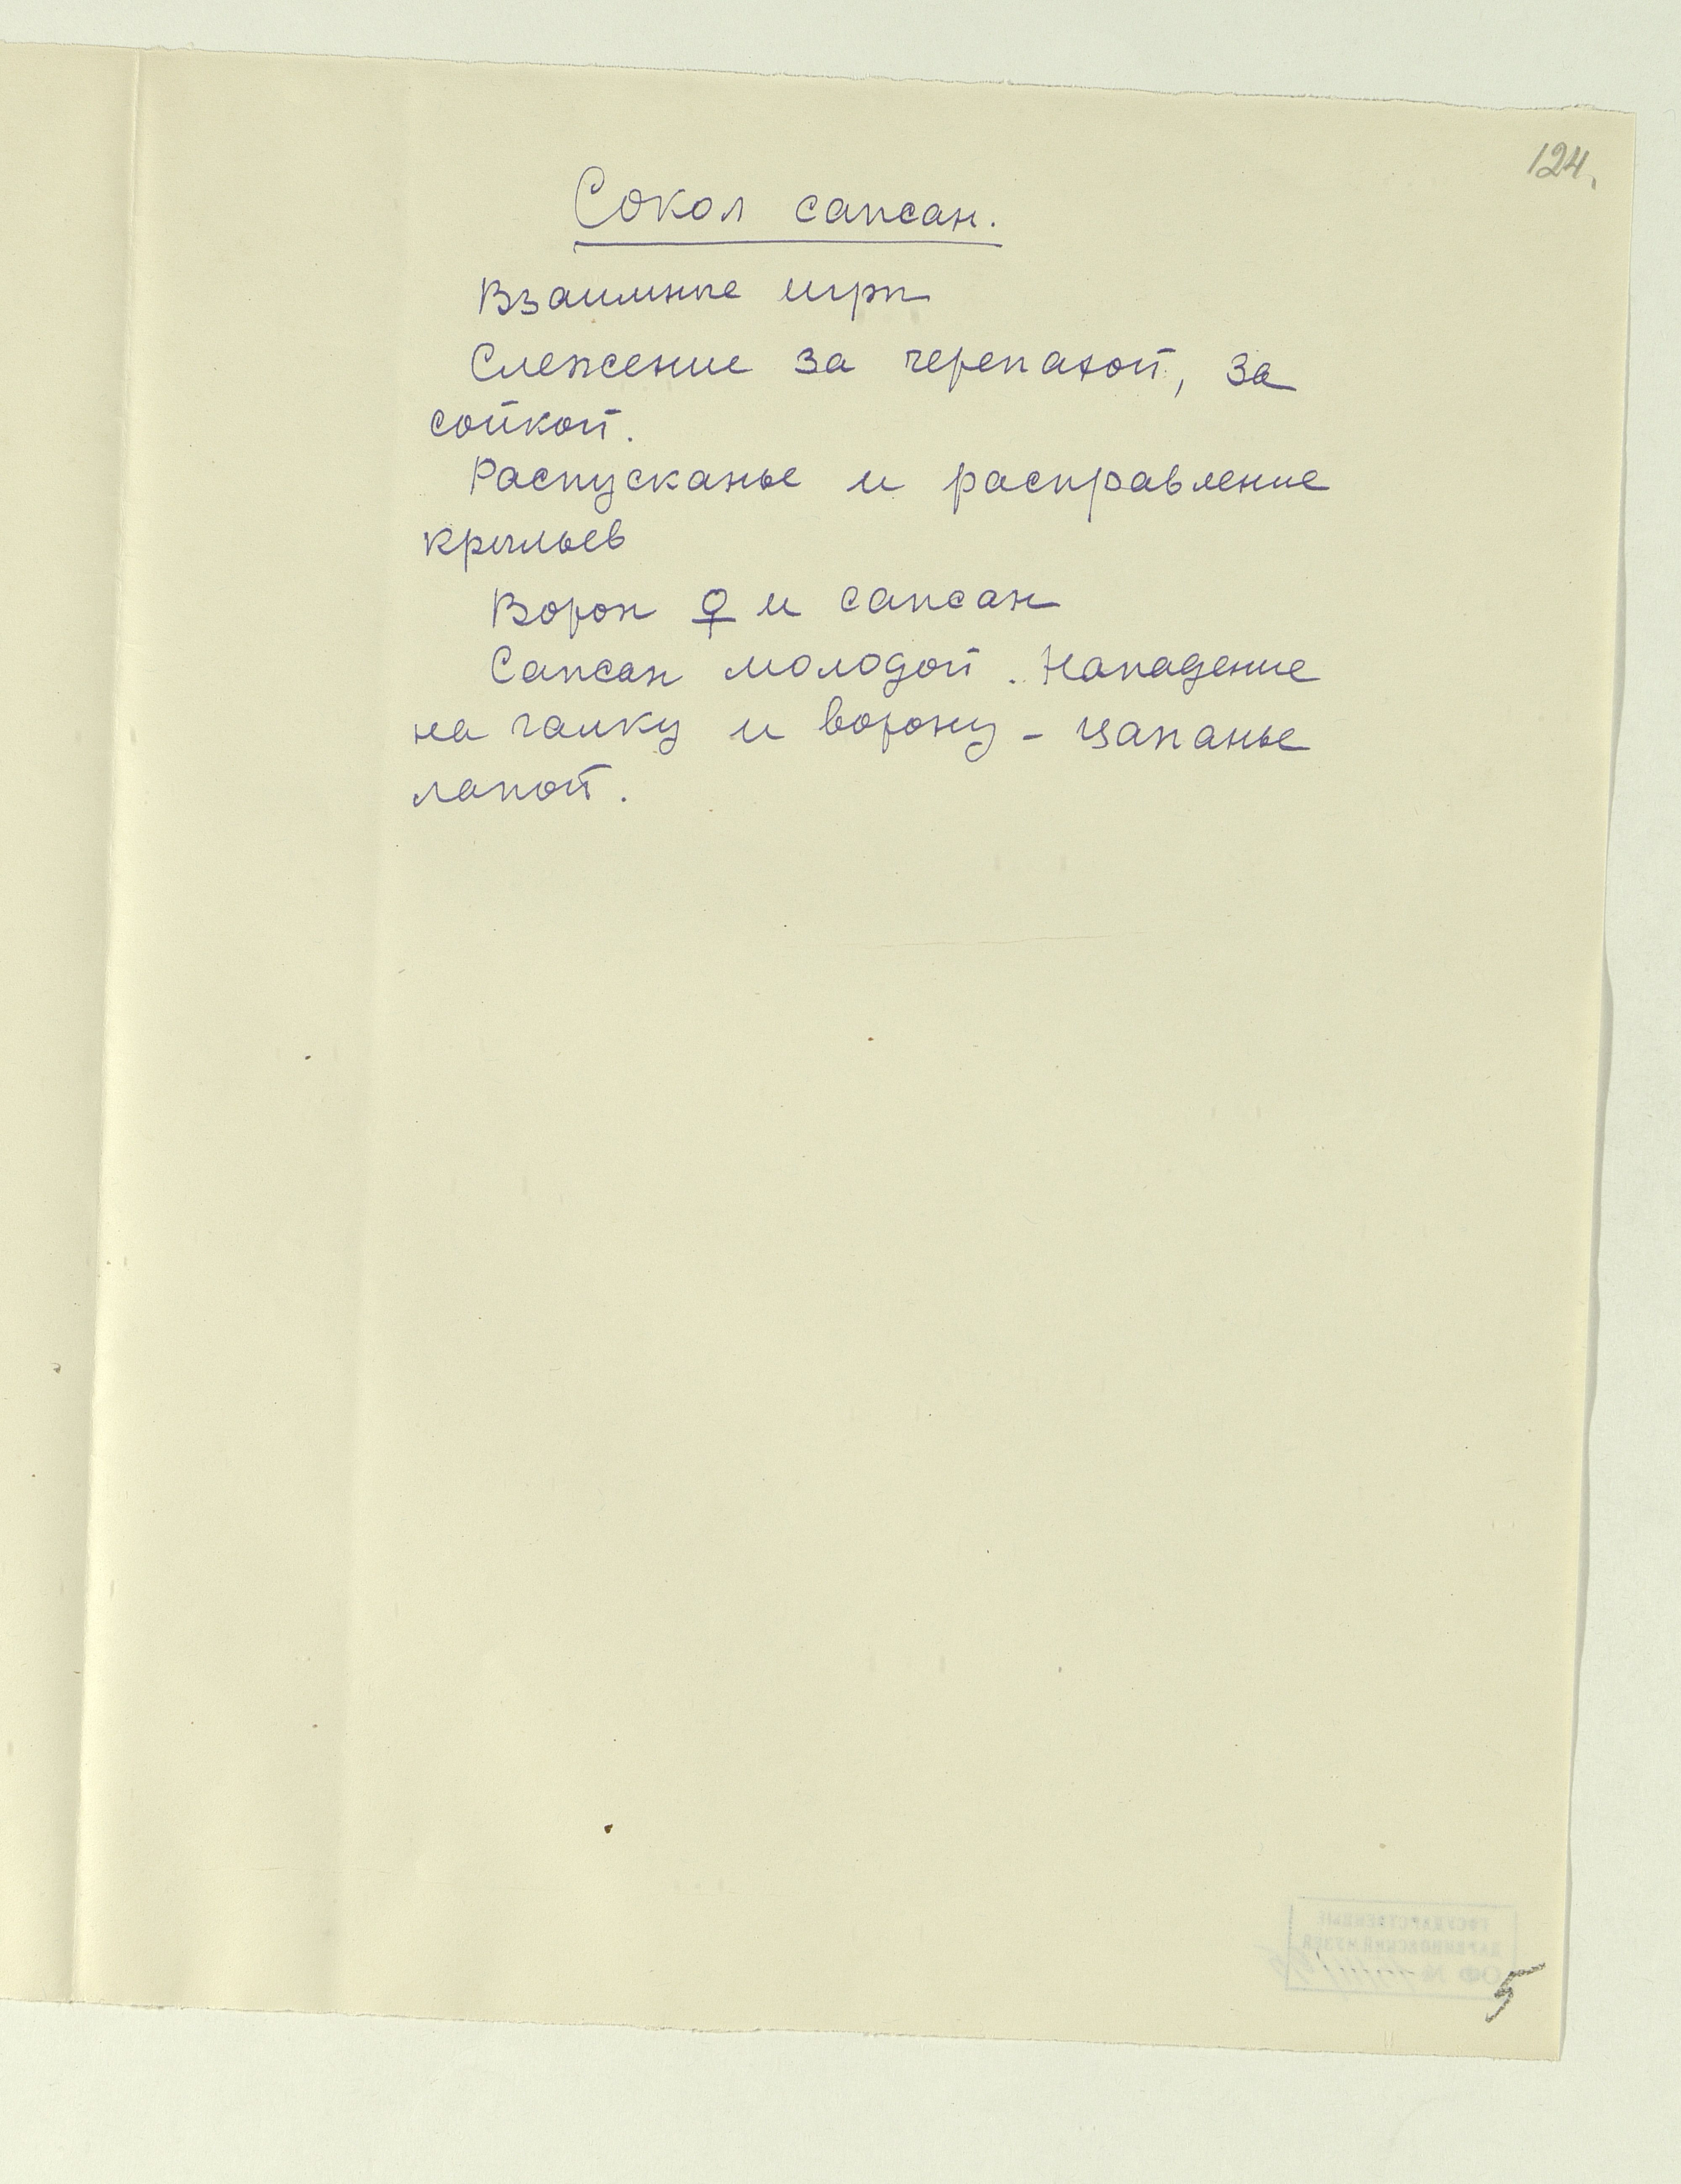 124.
Сокол сапсан.
Взаимные игры
Слежение за черепахой, за
сойкой.
Распусканье и расправление
крыльев
Ворон ♀ и сапсан
Сапсан молодой. Нападение
на галку и ворону - цапанье
лапой.
ГОСУДАРСТВЕННЫЙ
ДАРВИНОВСКИЙ МУЗЕЙ
ОФ №
5